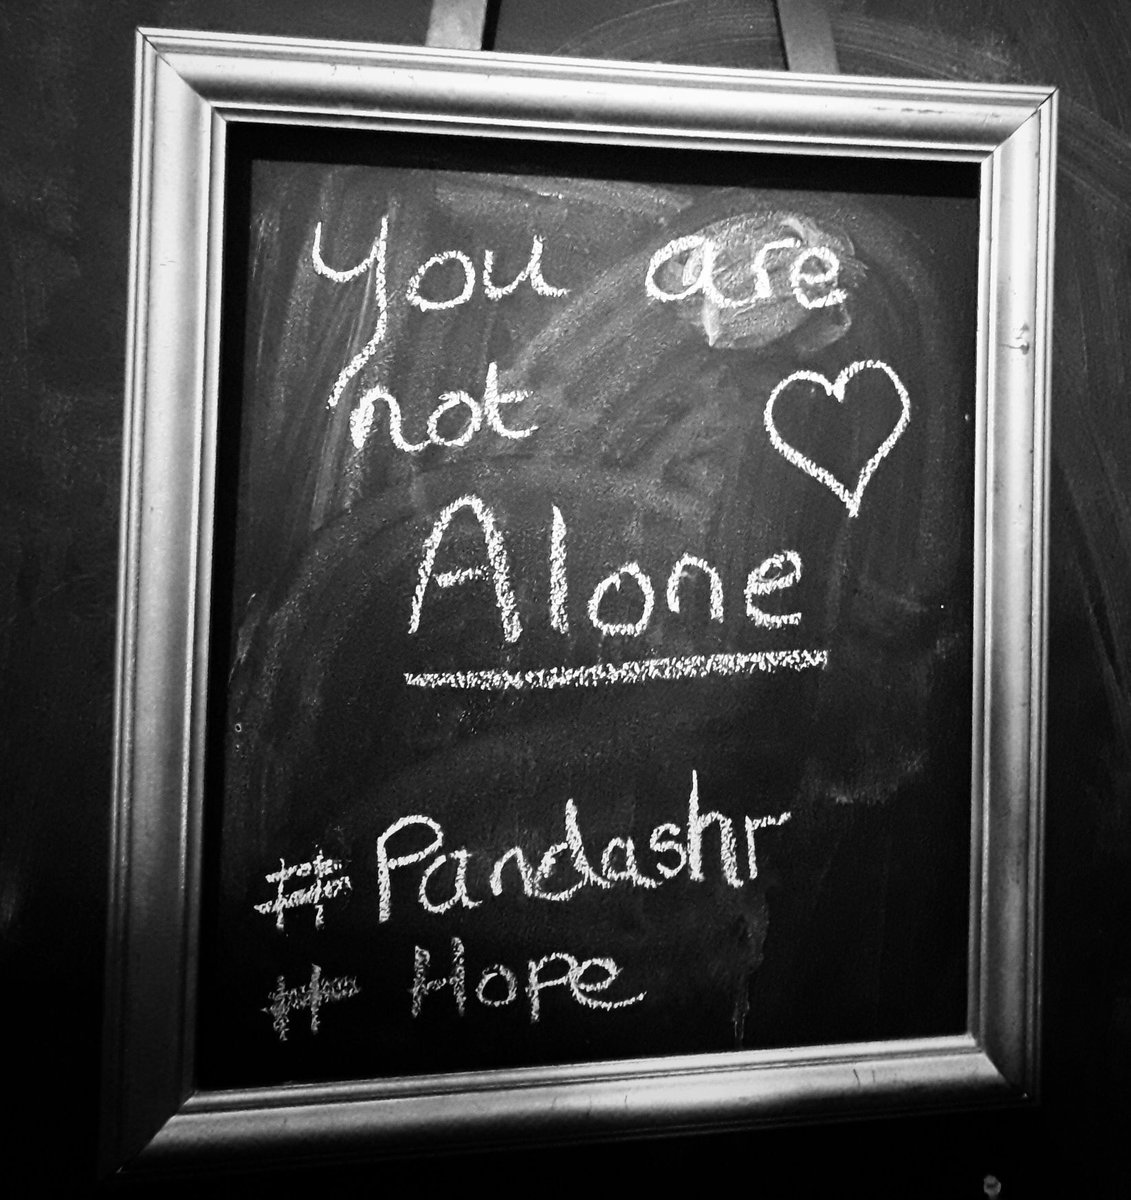 you are
not
Alone
#Pandashr
# Hope